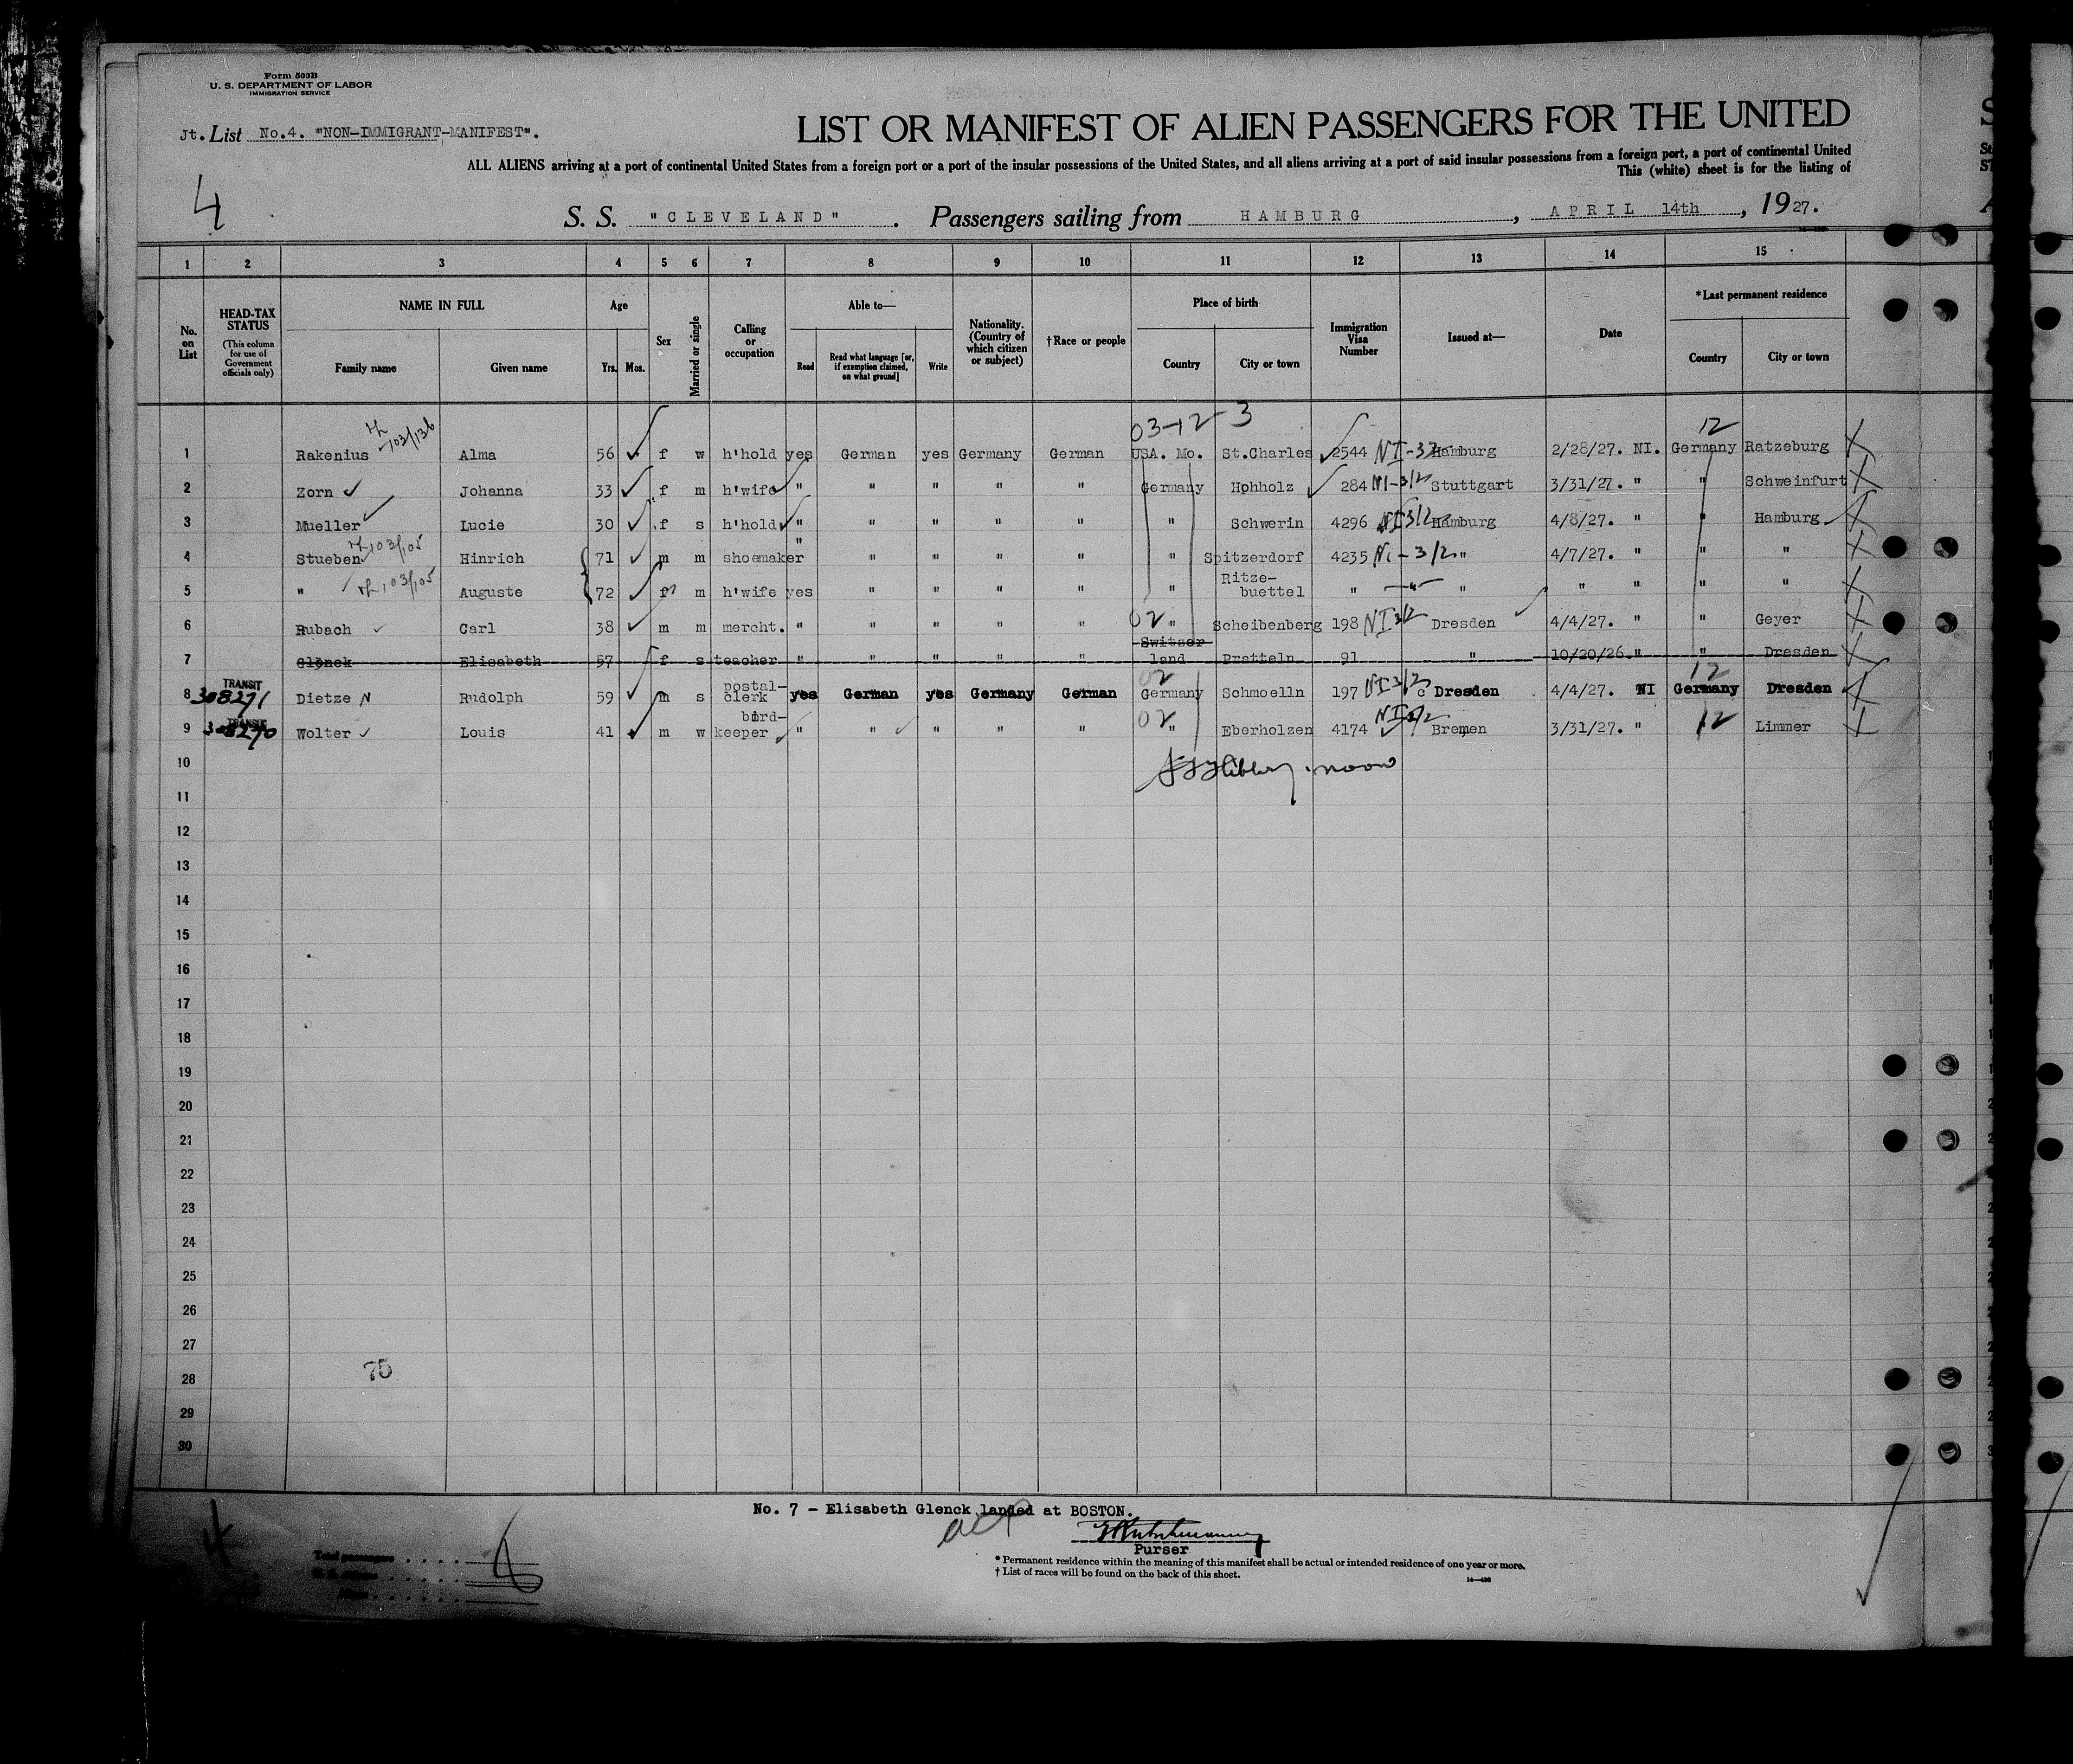 Form 500B
U. S. DEPARTMENT OF LABOR
IMMIGRATION SERVICE
Jt. List No.4. "NON-IMMIGRANT-MANIFEST".
LIST OR MANIFEST OF ALIEN PASSENGERS FOR THE UNITED
ALL ALIENS arriving at a port of continental United States from a foreign port or a port of the insular possessions of the United States, and all aliens arriving at a port of said insular possessions from a foreign port, a port of continental United
This (white) sheet is for the listing of
4
S. S. "CLEVELAND". Passengers sailing from HAMBURG, APRIL 14th, 1927.
1 2 3 4 5 6 7 8 9 10 11 12 13 14 15
No. on List
HEAD-TAX STATUS (This column for use of Government officials only)
NAME IN FULL Family name Given name
Age Yrs. Mos.
Sex
Married or single
Calling or occupation
Able to— Read Read what language [or, if exemption claimed, on what ground] Write
Nationality. (Country of which citizen or subject)
†Race or people
Place of birth Country City or town
Immigration Visa Number
Issued at—
Date
*Last permanent residence Country City or town
03-12-3 12
1 Rakenius 103/136 Alma 56 f w h'hold yes German yes Germany German USA. Mo. St.Charles 2544 NI-3/2 Hamburg 2/28/27. NI. Germany Ratzeburg
2 Zorn Johanna 33 f m h'wife " " " " " Germany Hohholz 284 NI-3/2 Stuttgart 3/31/27. " " Schweinfurt
3 Mueller Lucie 30 f s h'hold " " " " " " Schwerin 4296 NI 3/2 Hamburg 4/8/27. " " Hamburg
4 Stueben 103/105 Hinrich 71 m m shoemaker " " " " " " Spitzerdorf 4235 NI-3/2 " 4/7/27. " " "
5 " 103/105 Auguste 72 f m h'wife yes " " " " " Ritze-buettel " " " " " " "
6 Rubach Carl 38 m m mercht. " " " " " 02 " Scheibenberg 198 NI 3/2 Dresden 4/4/27. " " Geyer
7 Glenck Elisabeth 57 f s teacher " " " " " Switzerland Pratteln 91 " 10/20/26. " " Dresden
TRANSIT
8 308271 Dietze Rudolph 59 m s postal-clerk yes German yes Germany German 02 Germany Schmoelln 197 NI 3/2 Dresden 4/4/27. NI 12 Germany Dresden
TRANSIT
9 308270 Wolter Louis 41 m w bird-keeper " " " " " 02 " Eberholzen 4174 NI 3/2 Bremen 3/31/27. " 12 Limmer
10
11
12
13
14
15
16
17
18
19
20
21
22
23
24
25
26
27
28 75
29
30
No. 7 - Elisabeth Glenck landed at BOSTON.
Purser
4
Total passengers
* Permanent residence within the meaning of this manifest shall be actual or intended residence of one year or more.
† List of races will be found on the back of this sheet.